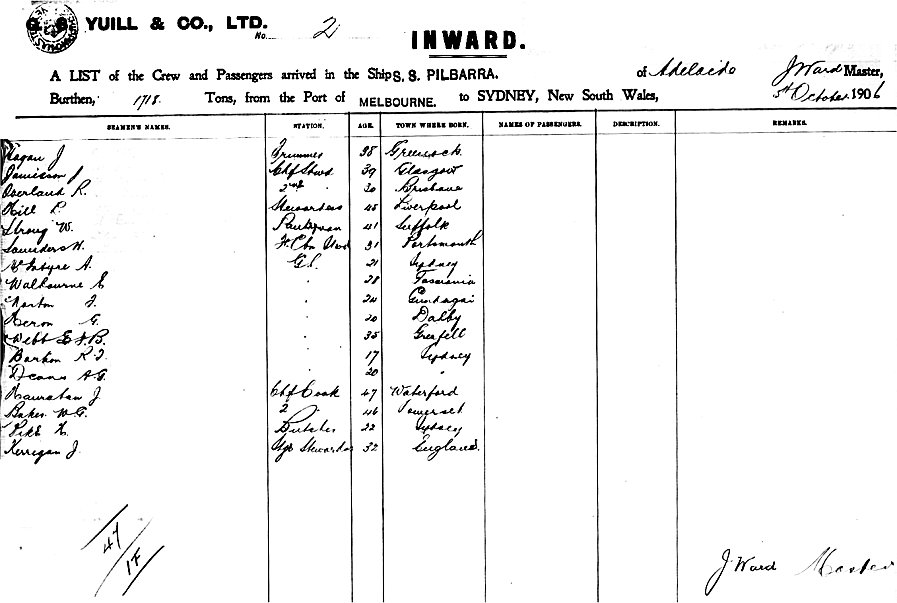 YUILL & CO., LTD.
No. 2
INWARD.
A LIST of the Crew and Passengers arrived in the Ship S. S. PILBARRA. of Adelaide J Ward Master,
Burthen, 1718. Tons, from the Port of MELBOURNE. to SYDNEY, New South Wales, October 1906
SEAMEN'S NAMES. STATION. AGE. TOWN WHERE BORN. NAMES OF PASSENGERS. DESCRIPTION. REMARKS.
J Trimmer 38 Greenock
Jamieson J Chf Stwd 39 Glasgow
Overland R. 2nd " 30 Brisbane
Hill Stewardess 45 Liverpool
Strong W. Pantryman 41 Suffolk
Saunders H. 31 Portsmouth
McIntyre A. G.S. 21 Sydney
Walbourne E " 28 Tasmania
Norton J. " 24 Gundagai
Heron G. " 20 Dalby
Webb E.J.B. " 35 Grenfell
Barton R.J. " 17 Sydney
Deans A.G. " 20 "
Hanrahan J Chf Cook 47 Waterford
Baker W.G. 2 " 46 Somerset
Pike Butcher 22 Sydney
Kerrigan J. Stewardess 32 England
47
17
J Ward Master